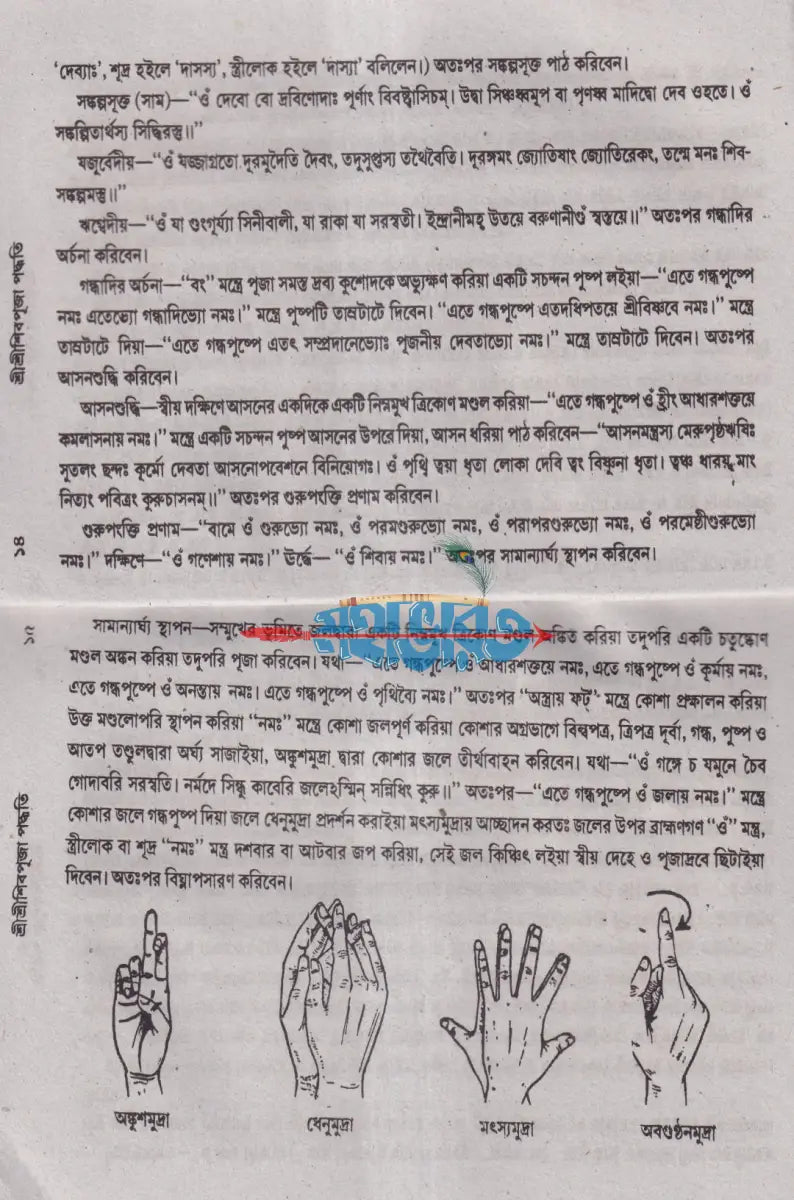 'দেব্যাঃ', শূদ্র হইলে 'দাসস্য', স্ত্রীলোক হইলে 'দাস্যা' বলিলেন।) অতঃপর সঙ্কল্পসূক্ত পাঠ করিবেন।
সঙ্কল্পসূক্ত (সাম)—“ওঁ দেবো বো দ্রবিণোদাঃ পূর্ণাং বিবষ্ট্বাসিচম্। উদ্বা সিঞ্চধ্বমুপ বা পৃণধ্ব মাদিদ্বো দেব ওহতে। ওঁ
সঙ্কল্পিতার্থস্য সিদ্ধিরস্তু॥”
যজুর্বেদীয়—“ওঁ যজ্জাগ্রতো দূরমুদৈতি দৈবং, তদুসুপ্তস্য তথৈবৈতি। দূরঙ্গমং জ্যোতিষাং জ্যোতিরেকং, তন্মে মনঃ শিব-
সঙ্কল্পমস্তু॥”
ঋগ্বেদীয়—“ওঁ যা গুংগূর্য্যা সিনীবালী, যা রাকা যা সরস্বতী। ইন্দ্রানীমহ্ব উতয়ে বরুণানীওঁ স্বস্তয়ে॥” অতঃপর গন্ধাদির
অর্চনা করিবেন।
গন্ধাদির অর্চনা—“বং” মন্ত্রে পূজা সমস্ত দ্রব্য কুশোদকে অভ্যুক্ষণ করিয়া একটি সচন্দন পুষ্প লইয়া—“এতে গন্ধপুষ্পে
নমঃ এতেভ্যো গন্ধাদিভ্যো নমঃ।” মন্ত্রে পুষ্পটি তাম্রটাটে দিবেন। “এতে গন্ধপুষ্পে এতদধিপতয়ে শ্রীবিষ্ণবে নমঃ।” মন্ত্রে
তাম্রটাটে দিয়া—“এতে গন্ধপুষ্পে এতৎ সম্প্রদানেভ্যোঃ পূজনীয় দেবতাভ্যো নমঃ।” মন্ত্রে তাম্রটাটে দিবেন। অতঃপর
আসনশুদ্ধি করিবেন।
আসনশুদ্ধি—স্বীয় দক্ষিণে আসনের একদিকে একটি নিম্নমুখ ত্রিকোণ মণ্ডল করিয়া—“এতে গন্ধপুষ্পে ওঁ হ্রীং আধারশক্তয়ে
কমলাসনায় নমঃ।” মন্ত্রে একটি সচন্দন পুষ্প আসনের উপরে দিয়া, আসন ধরিয়া পাঠ করিবেন—“আসনমন্ত্রস্য মেরুপৃষ্ঠঋষিঃ
সুতলং ছন্দঃ কূর্মো দেবতা আসনোপবেশনে বিনিয়োগঃ। ওঁ পৃথ্বি ত্বয়া ধৃতা লোকা দেবি ত্বং বিষ্ণুনা ধৃতা। ত্বঞ্চ ধারয় মাং
নিত্যং পবিত্রং কুরুচাসনম্॥” অতঃপর গুরুপংক্তি প্রণাম করিবেন।
গুরুপংক্তি প্রণাম—“বামে ওঁ গুরুভ্যো নমঃ, ওঁ পরমগুরুভ্যো নমঃ, ওঁ পরাপরগুরুভ্যো নমঃ, ওঁ পরমেষ্ঠীগুরুভ্যো
নমঃ।” দক্ষিণে—“ওঁ গণেশায় নমঃ।” উর্দ্ধে— “ওঁ শিবায় নমঃ।” অতঃপর সামান্যার্ঘ্য স্থাপন করিবেন।
শ্রীশ্রীশিবপূজা পদ্ধতি
১৪
মহাভারত
সামান্যার্ঘ্য স্থাপন—সম্মুখের ভূমিতে জলদ্বারা একটি নিম্নমুখ ত্রিকোণ মণ্ডল অঙ্কিত করিয়া তদুপরি একটি চতুষ্কোণ
মণ্ডল অঙ্কন করিয়া তদুপরি পূজা করিবেন। যথা—“এতে গন্ধপুষ্পে ওঁ আধারশক্তয়ে নমঃ, এতে গন্ধপুষ্পে ওঁ কূর্মায় নমঃ,
এতে গন্ধপুষ্পে ওঁ অনন্তায় নমঃ। এতে গন্ধপুষ্পে ওঁ পৃথিব্যৈ নমঃ।” অতঃপর “অস্ত্রায় ফট্” মন্ত্রে কোশা প্রক্ষালন করিয়া
উক্ত মণ্ডলোপরি স্থাপন করিয়া “নমঃ” মন্ত্রে কোশা জলপূর্ণ করিয়া কোশার অগ্রভাগে বিল্বপত্র, ত্রিপত্র দূর্বা, গন্ধ, পুষ্প ও
আতপ তণ্ডুলদ্বারা অর্ঘ্য সাজাইয়া, অঙ্কুশমুদ্রা দ্বারা কোশার জলে তীর্থাবাহন করিবেন। যথা—“ওঁ গঙ্গে চ যমুনে চৈব
গোদাবরি সরস্বতি। নর্মদে সিন্ধু কাবেরি জলেহস্মিন্ সন্নিধিং কুরু॥” অতঃপর—“এতে গন্ধপুষ্পে ওঁ জলায় নমঃ।” মন্ত্রে
কোশার জলে গন্ধপুষ্প দিয়া জলে ধেনুমুদ্রা প্রদর্শন করাইয়া মৎস্যমুদ্রায় আচ্ছাদন করতঃ জলের উপর ব্রাহ্মণগণ “ওঁ” মন্ত্র,
স্ত্রীলোক বা শূদ্র “নমঃ” মন্ত্র দশবার বা আটবার জপ করিয়া, সেই জল কিঞ্চিৎ লইয়া স্বীয় দেহে ও পূজাদ্রবে ছিটাইয়া
দিবেন। অতঃপর বিঘ্নাপসারণ করিবেন।
অঙ্কুশমুদ্রা
ধেনুমুদ্রা
মৎস্যমুদ্রা
অবগুণ্ঠনমুদ্রা
শ্রীশ্রীশিবপূজা পদ্ধতি
১৫